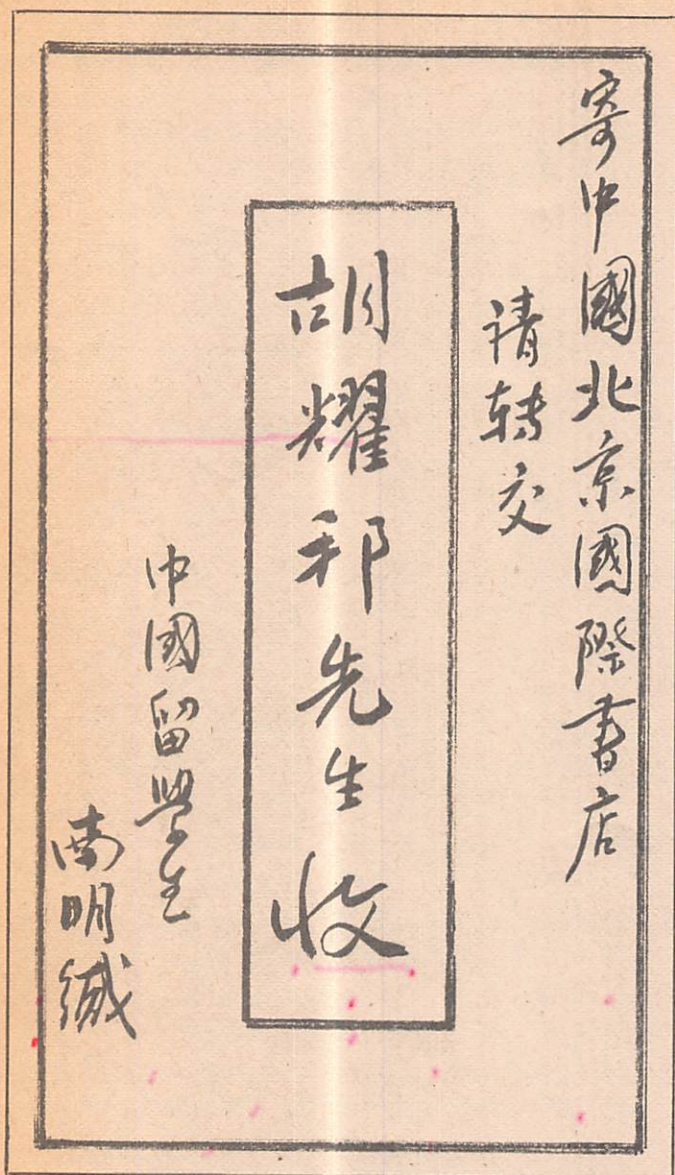 寄中國北京國際書店
請转交
胡耀邦先生收
中國留學生
南明缄